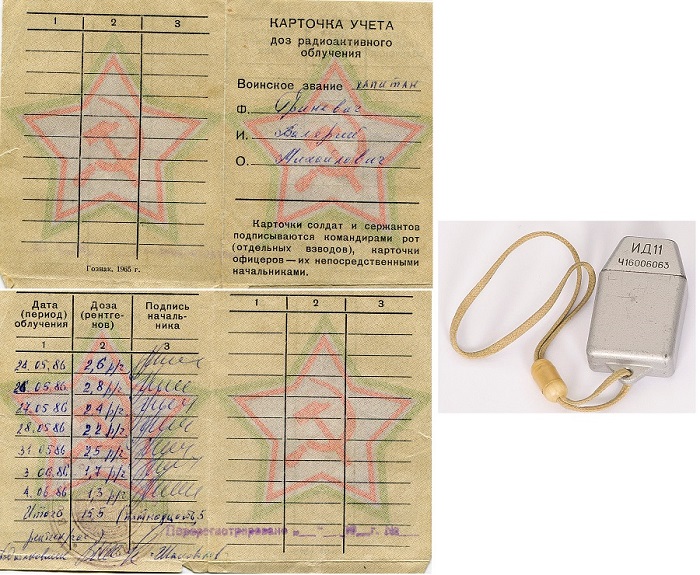 1 2 3
Гознак, 1965 г.
КАРТОЧКА УЧЕТА
доз радиоактивного
облучения
Воинское звание капитан
Ф. Гриневич
И. Валерий
О. Михайлович
Карточки солдат и сержантов
подписываются командирами рот
(отдельных взводов), карточки
офицеров — их непосредственными
начальниками.
Дата (период) облучения Доза (рентгенов) Подпись начальника
1 2 3
2,6 р/г
26.05.86 2,8 р/г
27.05.86 2,4 р/г
28.05.86 2,2 р/г
31.05.86 2,5 р/г
3.06.86 1,7 р/г
4.06.86 1,3 р/г
Итого 15,5
1 2 3
Перерегистрировано „ “ 19 г. №
ИД11
Ч16006063